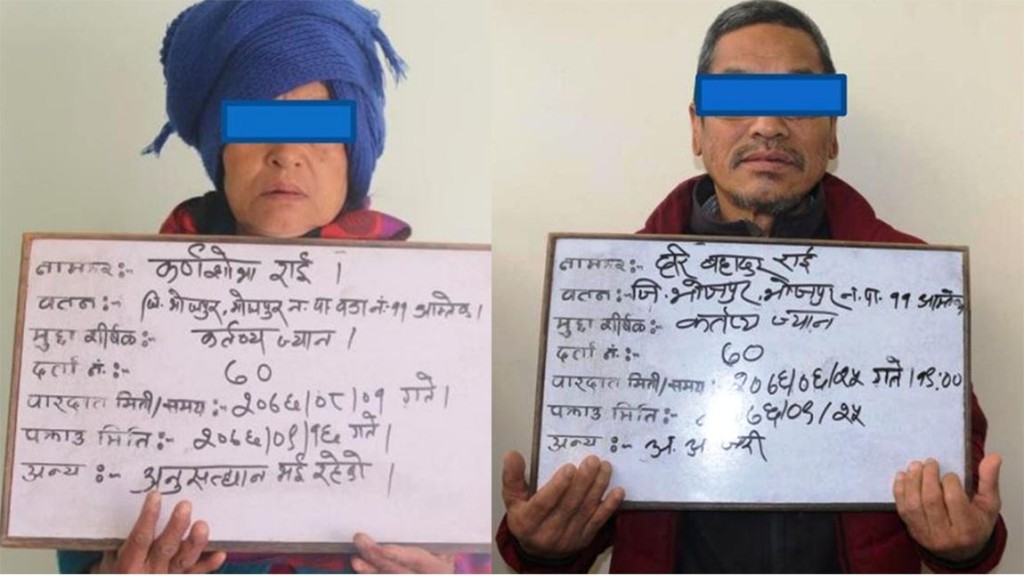 नामथर :- कर्णशोभा राई ।
वतन :- जि. भोजपुर, भोजपुर न.पा वडा नं.११ आमतेक ।
मुद्दा शीर्षक :- कर्तव्य ज्यान ।
दर्ता नं. :- ६०
वारदात मिती/समय :- २०७६/०८/०१ गते ।
पक्राउ मिति :- २०७६/०९/१६ गते ।
अन्य :- अनुसन्धान भई रहेको ।
नामथर :- वीर बहादुर राई
वतन :- जि. भोजपुर, भोजपुर न.पा. ११ आमतेक
मुद्दा शीर्षक :- कर्तव्य ज्यान
दर्ता नं. :- ६०
वारदात मिती/समय :- २०७६/०६/२५ गते
पक्राउ मिति :- ७६/०९/२५
अन्य :- अ. अ जारी